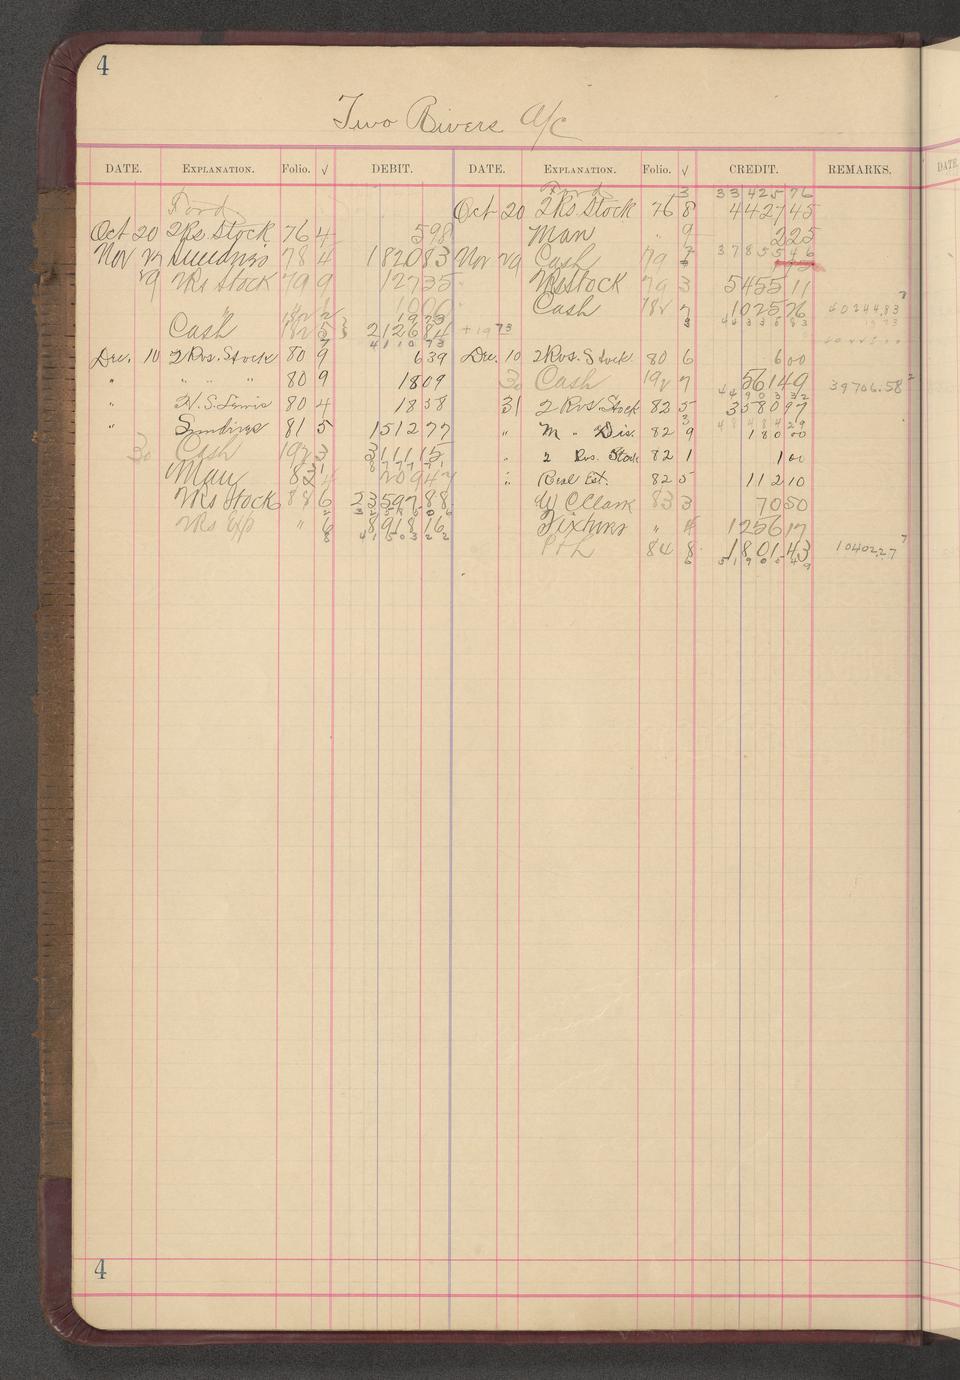 4
Two Rivers A/C
DATE. EXPLANATION. Folio. √ DEBIT. DATE. EXPLANATION. Folio. √ CREDIT. REMARKS.
Ford 3 33 425 76
Ford Oct 20 2Rs Stock 76 8 4427 45
Oct 20 2Rs. Stock 76 4 5 98 Man " 9 2 25
Nov 29 Sundries 78 4 1820 83 Nov 29 Cash 79 37855 46
29 2Rs Stock 79 9 127 35 2Rs Stock 79 3 5455 11
" 10 00 Cash 182 7 1025 76 40244.83
19 73 443356 83
Cash 182 5 2126 84 + 19 73
41 10 73
Dec. 10 2 Rvs. Stock 80 9 6 39 Dec. 10 2 Rvs. Stock 80 6 6 00
" " " " 80 9 18 09 30 Cash 192 7 561 49 39706.58
449033 2
" N. S. Lewis 80 4 18 58 31 2 Rvs. Stock 82 5 3580 97
484842 9
" Sundries 81 5 1512 77 " M " Dis. 82 9 180 00
30 Cash 192 3 3111 15 " 2 Rvs. Stock 82 1 1 00
Man 83 209 47 " Real Est. 82 5 112 10
2Rs Stock 84 6 23597 88 W C Clark 83 3 70 50
2Rs Exp " 6 8918 16 Fixtures " 4 1256 17
41503 22
P & L 84 8 1801 43 10402.27
519054 9
4